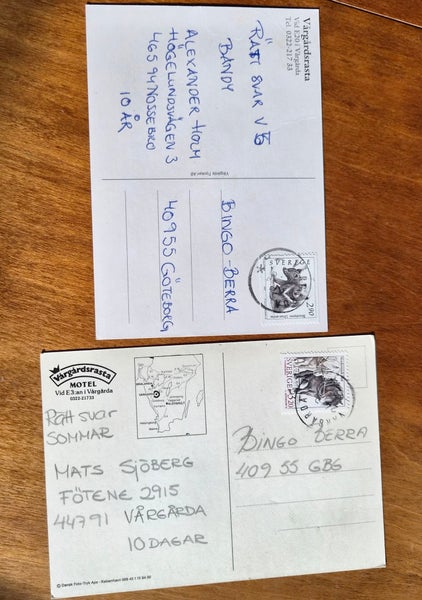 Vårgårdsrasta
Vid E20 i Vårgårda
Tel. 0322-217 33
RÄTT SVAR V 5
BANDY
ALEXANDER HOLM
HÖGELUNDSVÄGEN 3
465 94 NOSSEBRO
10 ÅR
Vårgårda Tryckeri AB
SVERIGE
2,90
BINGO-BERRA
409 55 GÖTEBORG
Vårgårdsrasta
MOTEL
Vid E3:an i Vårgårda
0322-21733
RÄTT SVAR
SOMMAR
MATS SJÖBERG
FÖTENE 2915
44791 VÅRGÅRDA
10 DAGAR
© Dansk Foto-Tryk Aps - København
SVERIGE
3.20
VÅRGÅRDA
BINGO BERRA
409 55 GBG